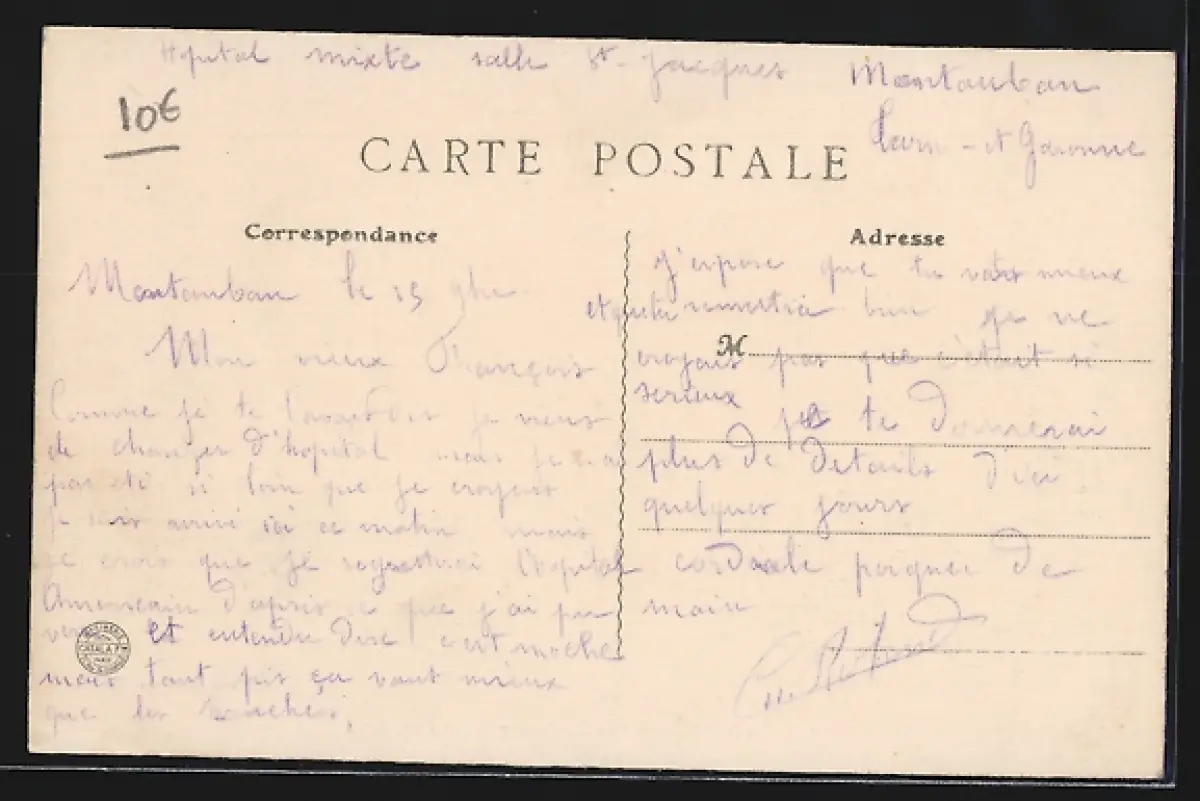 Hopital mixte salle St-Jacques Montauban
Tarn-et Garonne
10€
CARTE POSTALE
Correspondance
Adresse
M
Montauban le 15 9bre
Mon vieux François
Comme je te je viens
de changer d'hopital mais je n'ai
pas eté si loin que je croyais
je suis arrivé ici ce matin mais
je crois que je regretterai l'hopital
Americain d'apres ce que j'ai pu
voir et entendre dire c'est moche
mais tant pis ça vaut mieux
que les
J'espere que tu vas mieux
et que tu bien je ne
croyais pas que c'était si
serieux je te donnerai
plus de details d'ici
quelques jours
cordiale poignée de
main